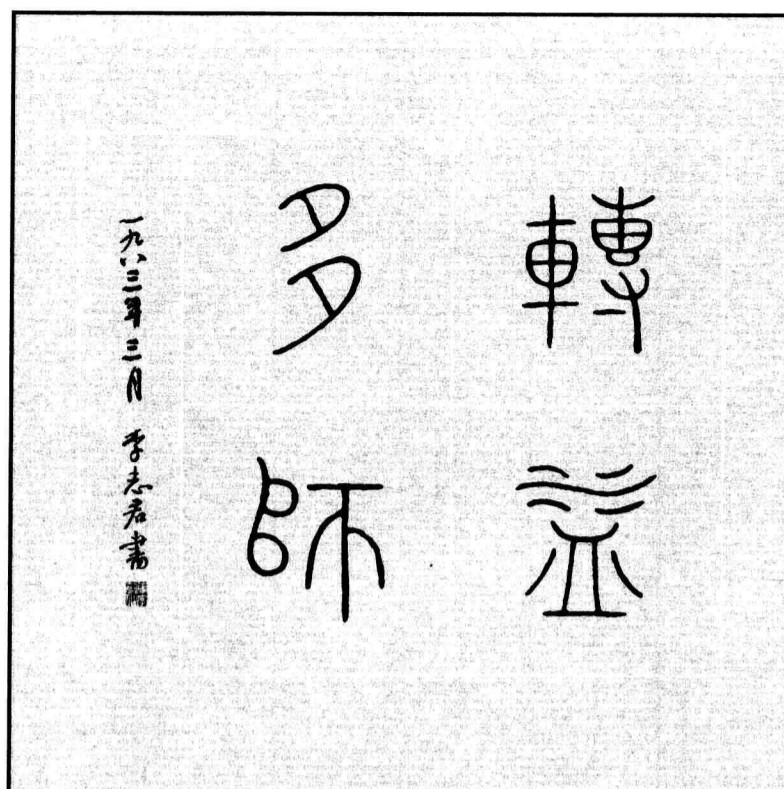 轉益
多師
一九八三年三月 李志君書